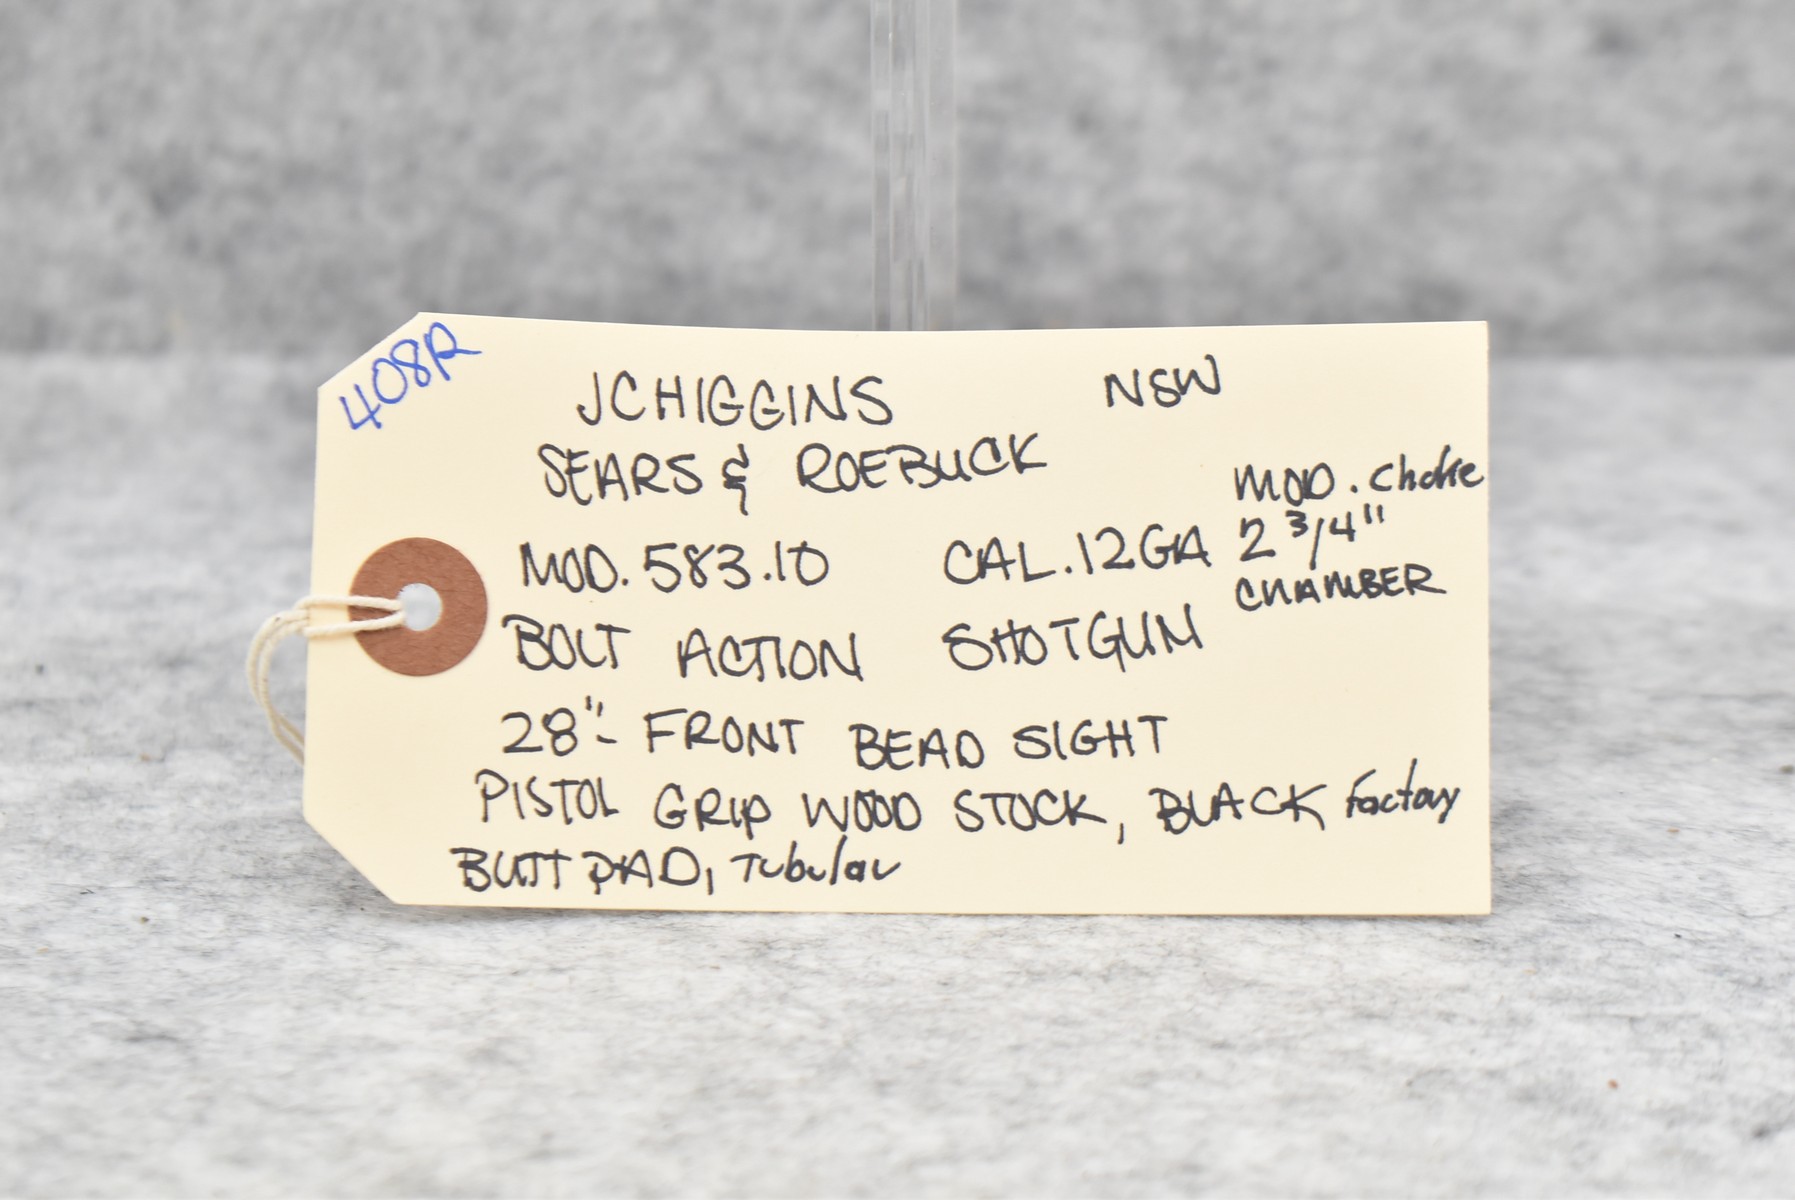 408R
JCHIGGINS NSW
SEARS & ROEBUCK
MOD. choke
MOD. 583.10 CAL. 12GA 2 3/4"
CHAMBER
BOLT ACTION SHOTGUN
28"- FRONT BEAD SIGHT
PISTOL GRIP WOOD STOCK, BLACK Factory
BUTT PAD, Tubular